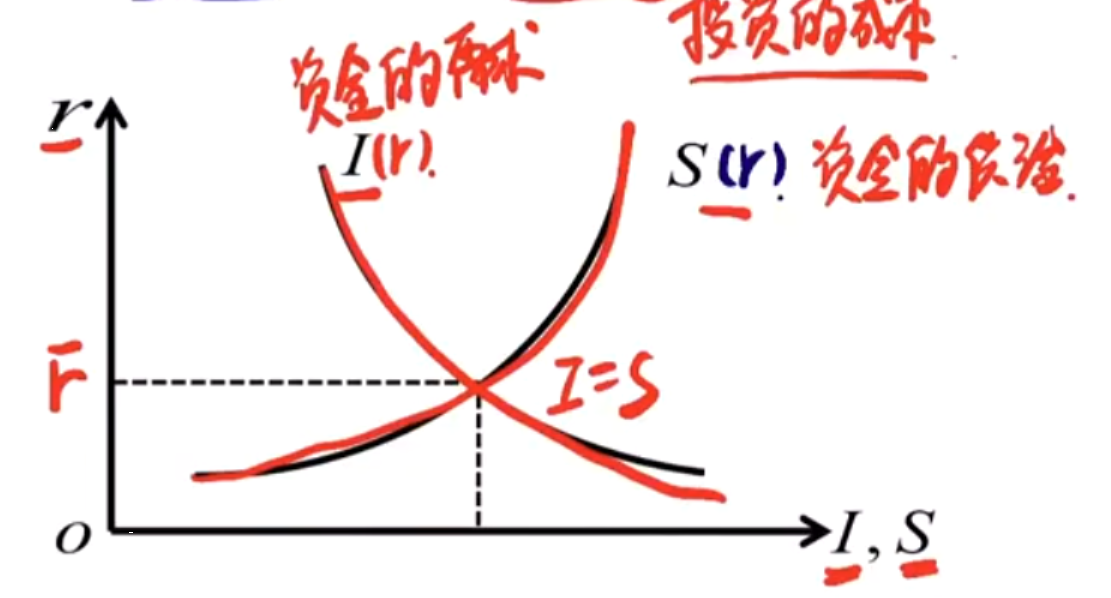 投资的成本.
资金的需求
r
I(r).
S(r). 资金的供给.
r̄
I=S
o
I, S